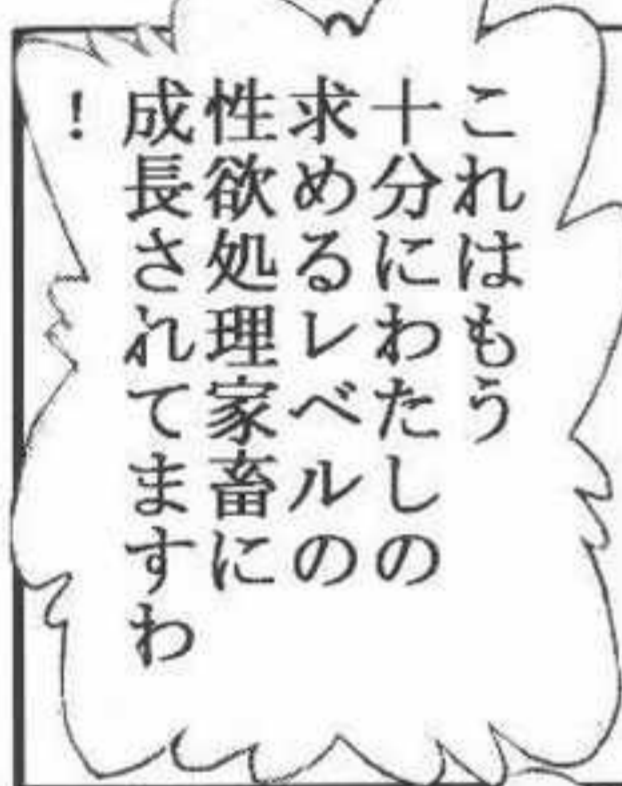 これはもう
十分にわたしの
求めるレベルの
性欲処理家畜に
成長されてますわ
！